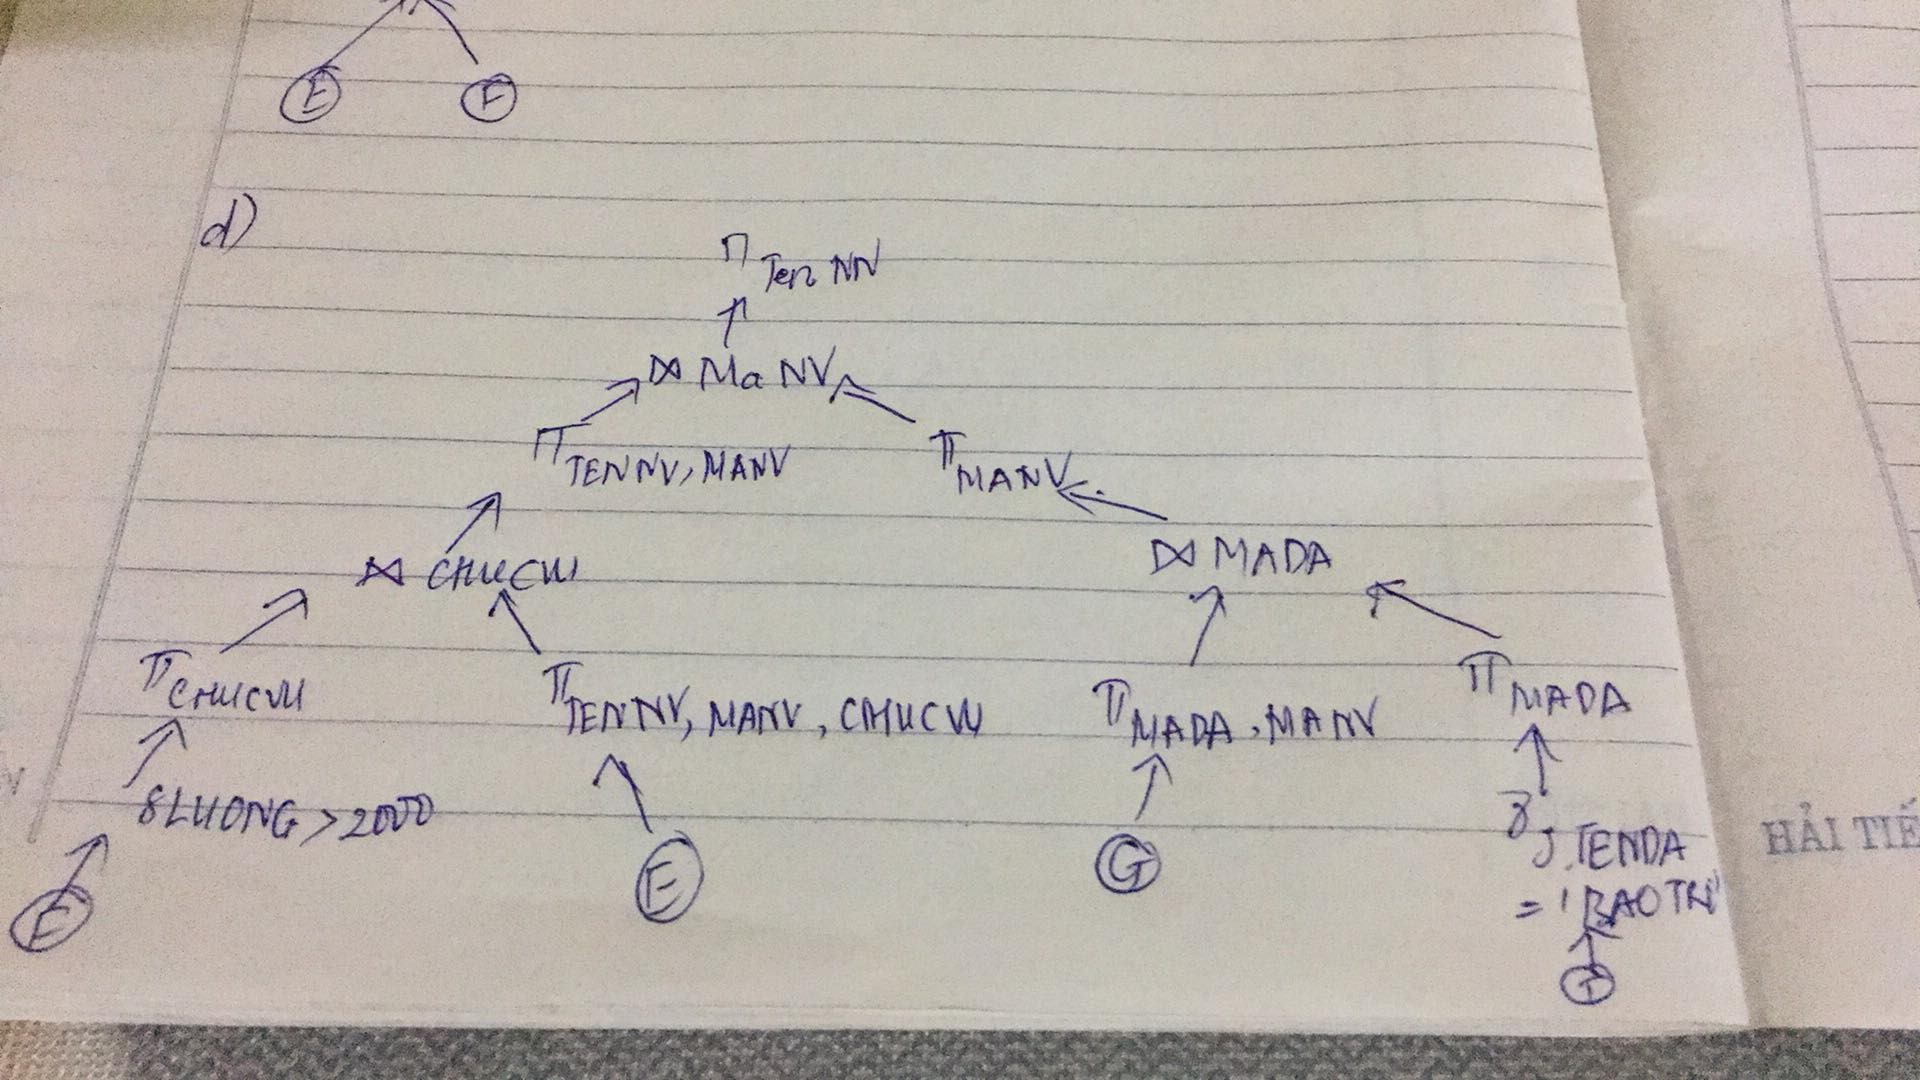 E F
d)
π Ten NN
⋈ MaNV
π TENNV, MANV π MANV
⋈ CHUCVU ⋈ MADA
π CHUCVU π TENNV, MANV, CHUCVU π MADA, MANV π MADA
δ LUONG > 2000 δ J.TENDA
HẢI TIẾ
= 'BAOTRI'
E E G J